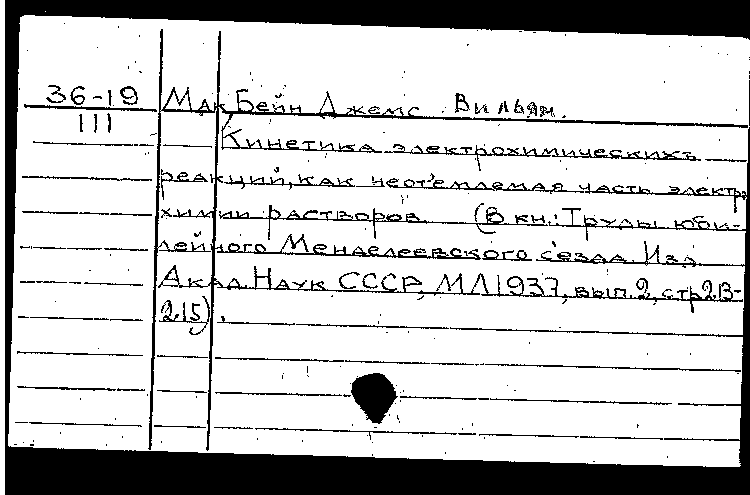 36-19
III
Мак Бейн Джемс Вильям.
Кинетика электрохимическихъ
реакций, как неот'емлемая часть электро
химии растворов (В кн.: Труды юби-
лейного Менделеевского с'езда. Изд.
Акад. Наук СССР, МЛ 1937, вып. 2, стр 213-
215).